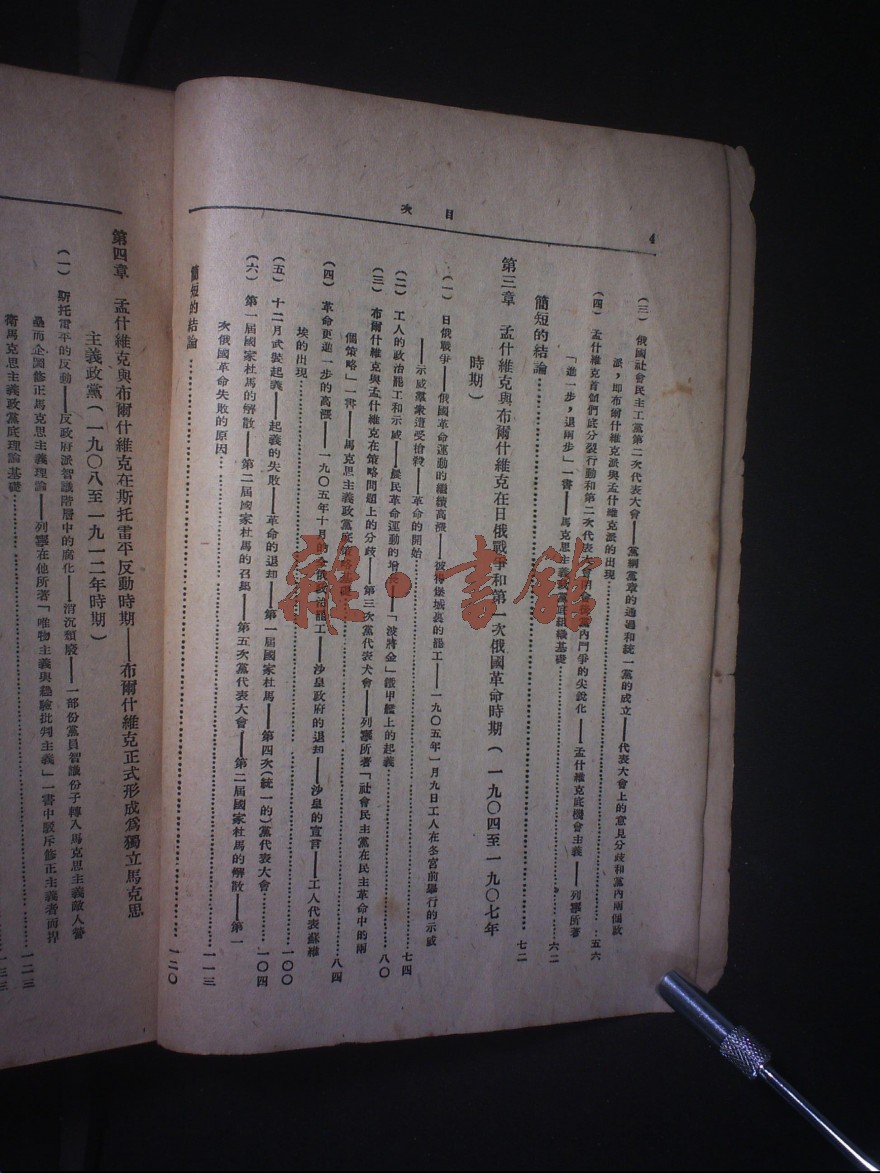 目次
4
(三) 俄國社會民主工黨第二次代表大會——黨綱黨章的通過和統一黨的成立——代表大會上的意見分歧和黨內兩個政
派,即布爾什維克派與孟什維克派的出現……五六
(四) 孟什維克首領們底分裂行動和第二次代表大會閉會後黨內鬥爭的尖銳化——孟什維克底機會主義——列寧所著
「進一步,退兩步」一書——馬克思主義政黨底組織基礎……六二
簡短的結論……七二
第三章 孟什維克與布爾什維克在日俄戰爭和第一次俄國革命時期(一九〇四至一九〇七年
時期)
(一) 日俄戰爭——俄國革命運動的繼續高漲——彼得堡城裏的罷工——一九〇五年一月九日工人在冬宮前舉行的示威
——示威羣衆遭受槍殺——革命的開始……七四
(二) 工人的政治罷工和示威——農民革命運動的增長——「波將金」鐵甲艦上的起義……八〇
(三) 布爾什維克與孟什維克在策略問題上的分歧——第三次黨代表大會——列寧所著「社會民主黨在民主革命中的兩
個策略」一書——馬克思主義政黨底策略基礎……八四
(四) 革命更進一步的高漲——一九〇五年十月的全俄政治罷工——沙皇政府的退却——沙皇的宣言——工人代表蘇維
埃的出現……一〇〇
(五) 十二月武裝起義——起義的失敗——革命的退却——第一屆國家杜馬——第四次(統一的)黨代表大會……一〇四
(六) 第一屆國家杜馬的解散——第二屆國家杜馬的召集——第五次黨代表大會——第二屆國家杜馬的解散——第一
次俄國革命失敗的原因……一一三
簡短的結論……一二〇
第四章 孟什維克與布爾什維克在斯托雷平反動時期——布爾什維克正式形成爲獨立馬克思
主義政黨(一九〇八至一九一二年時期)
(一) 斯托雷平的反動——反政府派智識階層中的腐化——消沉頹廢——一部份黨員智識份子轉入馬克思主義敵人營
壘而企圖修正馬克思主義理論——列寧在他所著「唯物主義與經驗批判主義」一書中駁斥修正主義者而捍
衛馬克思主義政黨底理論基礎……一二三
雜·書館